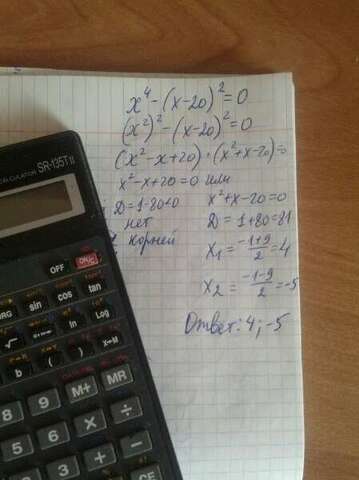 x⁴-(x-20)²=0
(x²)²-(x-20)²=0
(x²-x+20)·(x²+x-20)=0
x²-x+20=0 или x²+x-20=0
D=1-80<0
нет
корней
D=1+80=81
x₁=(-1+9)/2=4
x₂=(-1-9)/2=-5
Ответ: 4; -5
CALCULATOR SR-135T II
OFF
sin cos tan
ln Log
b ( ) X→M
M+ MR
8 9 × ÷
5 6 + -
CE